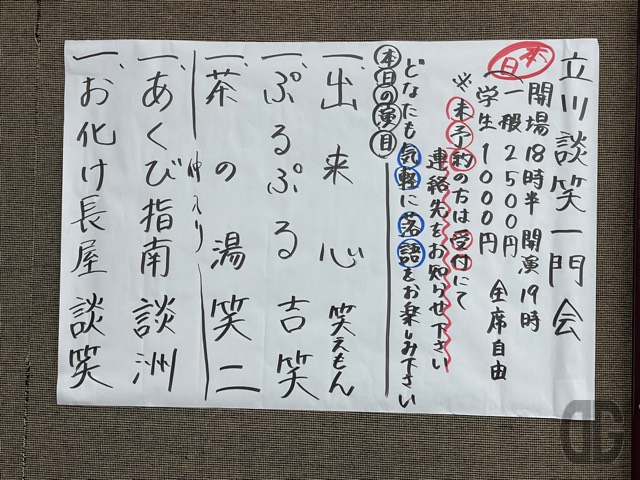 立川談笑一門会
本日
開場18時半 開演19時
一般 2500円
学生 1000円 全席自由
※未予約の方は受付にて
連絡先をお知らせ下さい
どなたも気軽に落語をお楽しみ下さい
本日の演目
一、出来心 笑えもん
一、ぷるぷる 吉笑
一、茶の湯 笑二
仲入り
一、あくび指南 談洲
一、お化け長屋 談笑
DG